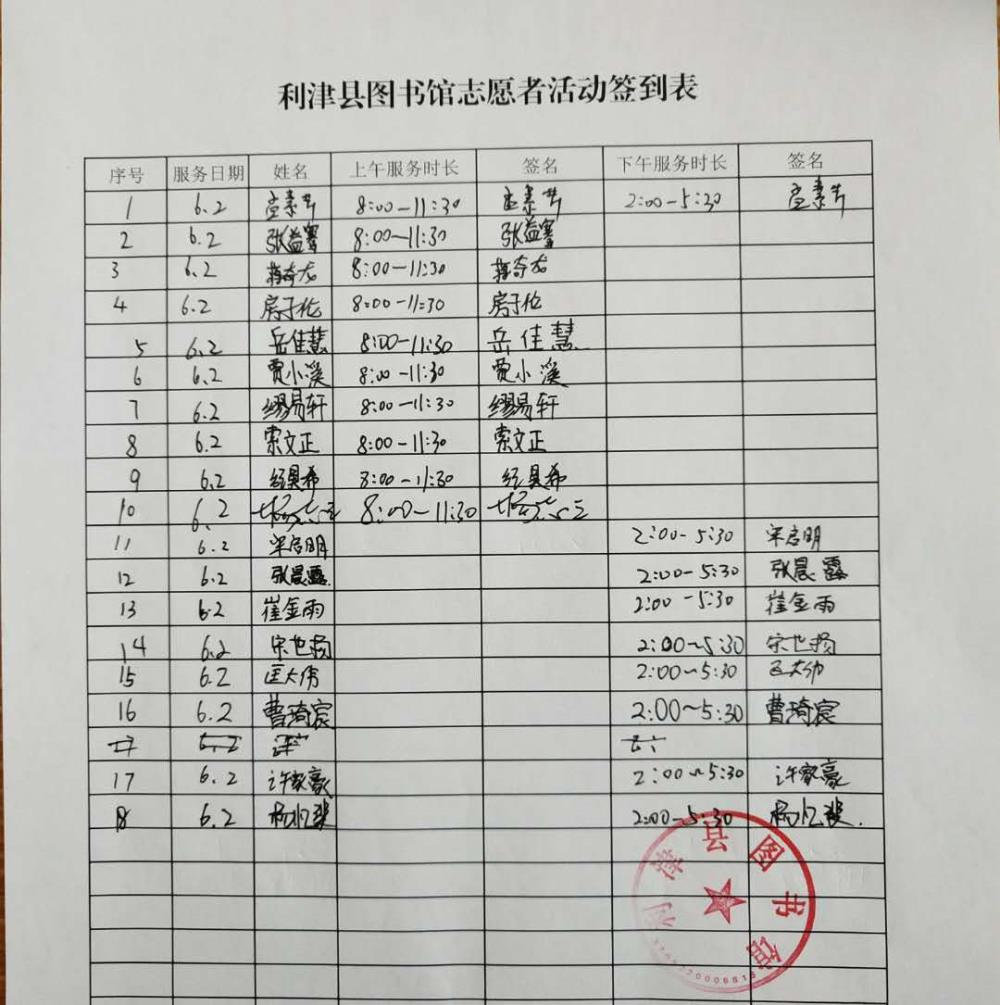 利津县图书馆志愿者活动签到表
序号 服务日期 姓名 上午服务时长 签名 下午服务时长 签名
1 6.2 8:00-11:30 2:00-5:30
2 6.2 张益 8:00-11:30 张益
3 6.2 蒋奇龙 8:00-11:30 蒋奇龙
4 6.2 房子伦 8:00-11:30 房子伦
5 6.2 岳佳慧 8:00-11:30 岳佳慧
6 6.2 贾小溪 8:00-11:30 贾小溪
7 6.2 缪易轩 8:00-11:30 缪易轩
8 6.2 索文正 8:00-11:30 索文正
9 6.2 8:00-11:30
10 6.2 8:00-11:30
11 6.2 宋启明 2:00-5:30 宋启明
12 6.2 张晨露 2:00-5:30 张晨露
13 6.2 崔金雨 2:00-5:30 崔金雨
14 6.2 宋世扬 2:00~5:30 宋世扬
15 6.2 匡大伟 2:00~5:30
16 6.2 曹琦宸 2:00~5:30 曹琦宸
17 6.2 许家豪 2:00~5:30 许家豪
18 6.2 2:00-5:30
利津县图书馆